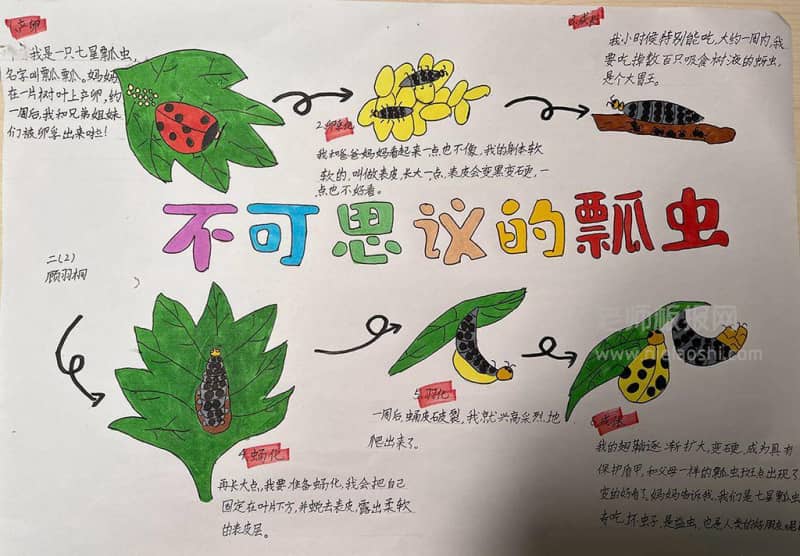 1.产卵
我是一只七星瓢虫,
名字叫瓢瓢。妈妈
在一片树叶上产卵,约
一周后,我和兄弟姐妹
们被卵孚出来啦!
2.卵孚化
我和爸爸妈妈看起来一点也不像,我的身体软
软的,叫做表皮,长大一点,表皮会变黑变硬,一
点也不好看。
我小时候特别能吃,大约一周内,我
要吃掉数百只吸食树液的蚜虫,
是个大胃王。
不可思议的瓢虫
二(2)
顾羽桐
4.蛹化
再长大点,我要准备蛹化,我会把自己
固定在叶片下方,并蜕去表皮,露出柔软
的表皮层。
5.羽化
一周后,蛹皮破裂,我就兴高采烈地
爬出来了。
6.成
我的翅膀逐渐扩大,变硬,成为具有
保护盾甲,和父母一样的瓢虫,斑点出现了
变的好看了。妈妈告诉我,我们是七星瓢虫
专吃坏虫子,是益虫,也是人类的好朋友
老师板报网
www.nicelaoshi.com